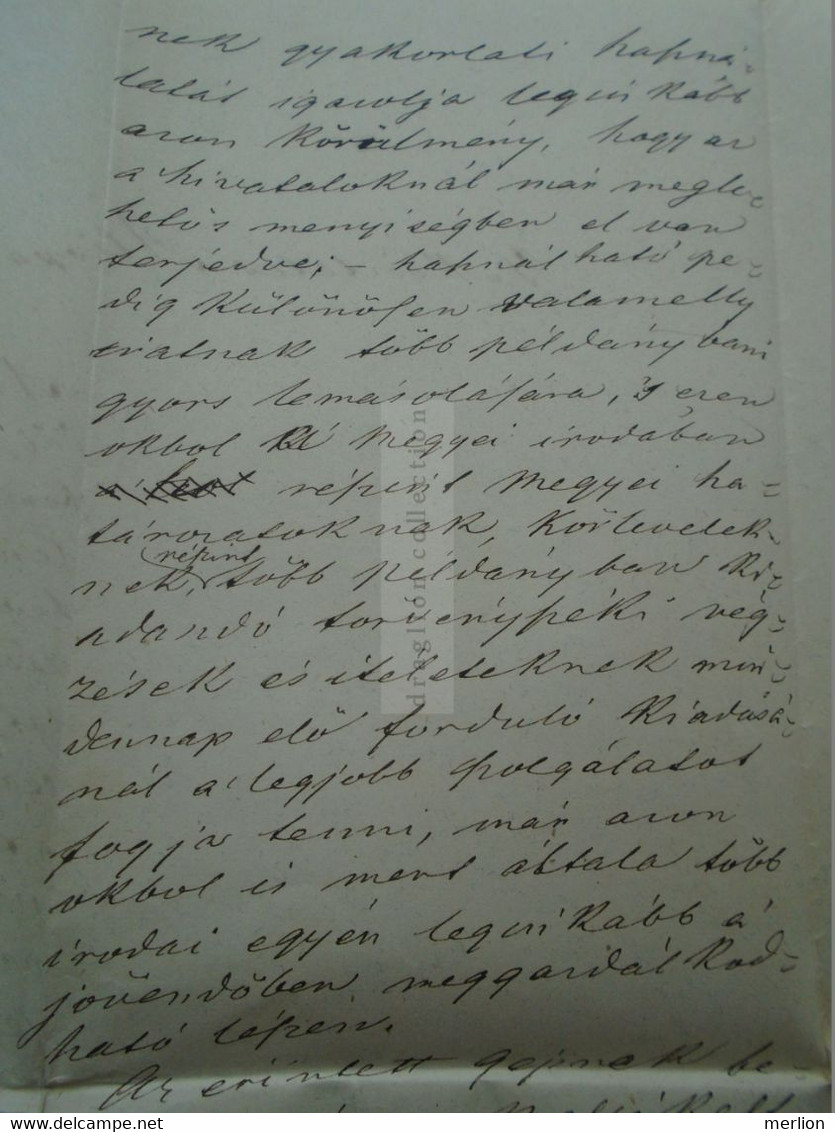 nek gyakorlati haszná-
latát igazolja leginkább
azon körülmény, hogy az
a hivataloknál már megle-
hetős menyiségben el van
terjedve; – használható pe-
dig különösen valamelly
iratnak több példánybani
gyors lemásolására, 's ezen
okbol a Megyei irodában
részint Megyei ha-
tározatoknak, Körlevelek-
nek, részint több példányban ki-
adandó törvényszéki vég-
zések és itéleteknek min-
dennap elő forduló kiadásá-
nál a' legjobb szolgálatot
fogja tenni, már azon
okbol is mert általa több
irodai egyén leginkább a'
jövendőben meggazdálkod-
ható lészen.
Az érintett gépnek be-
draglion collection
merlion